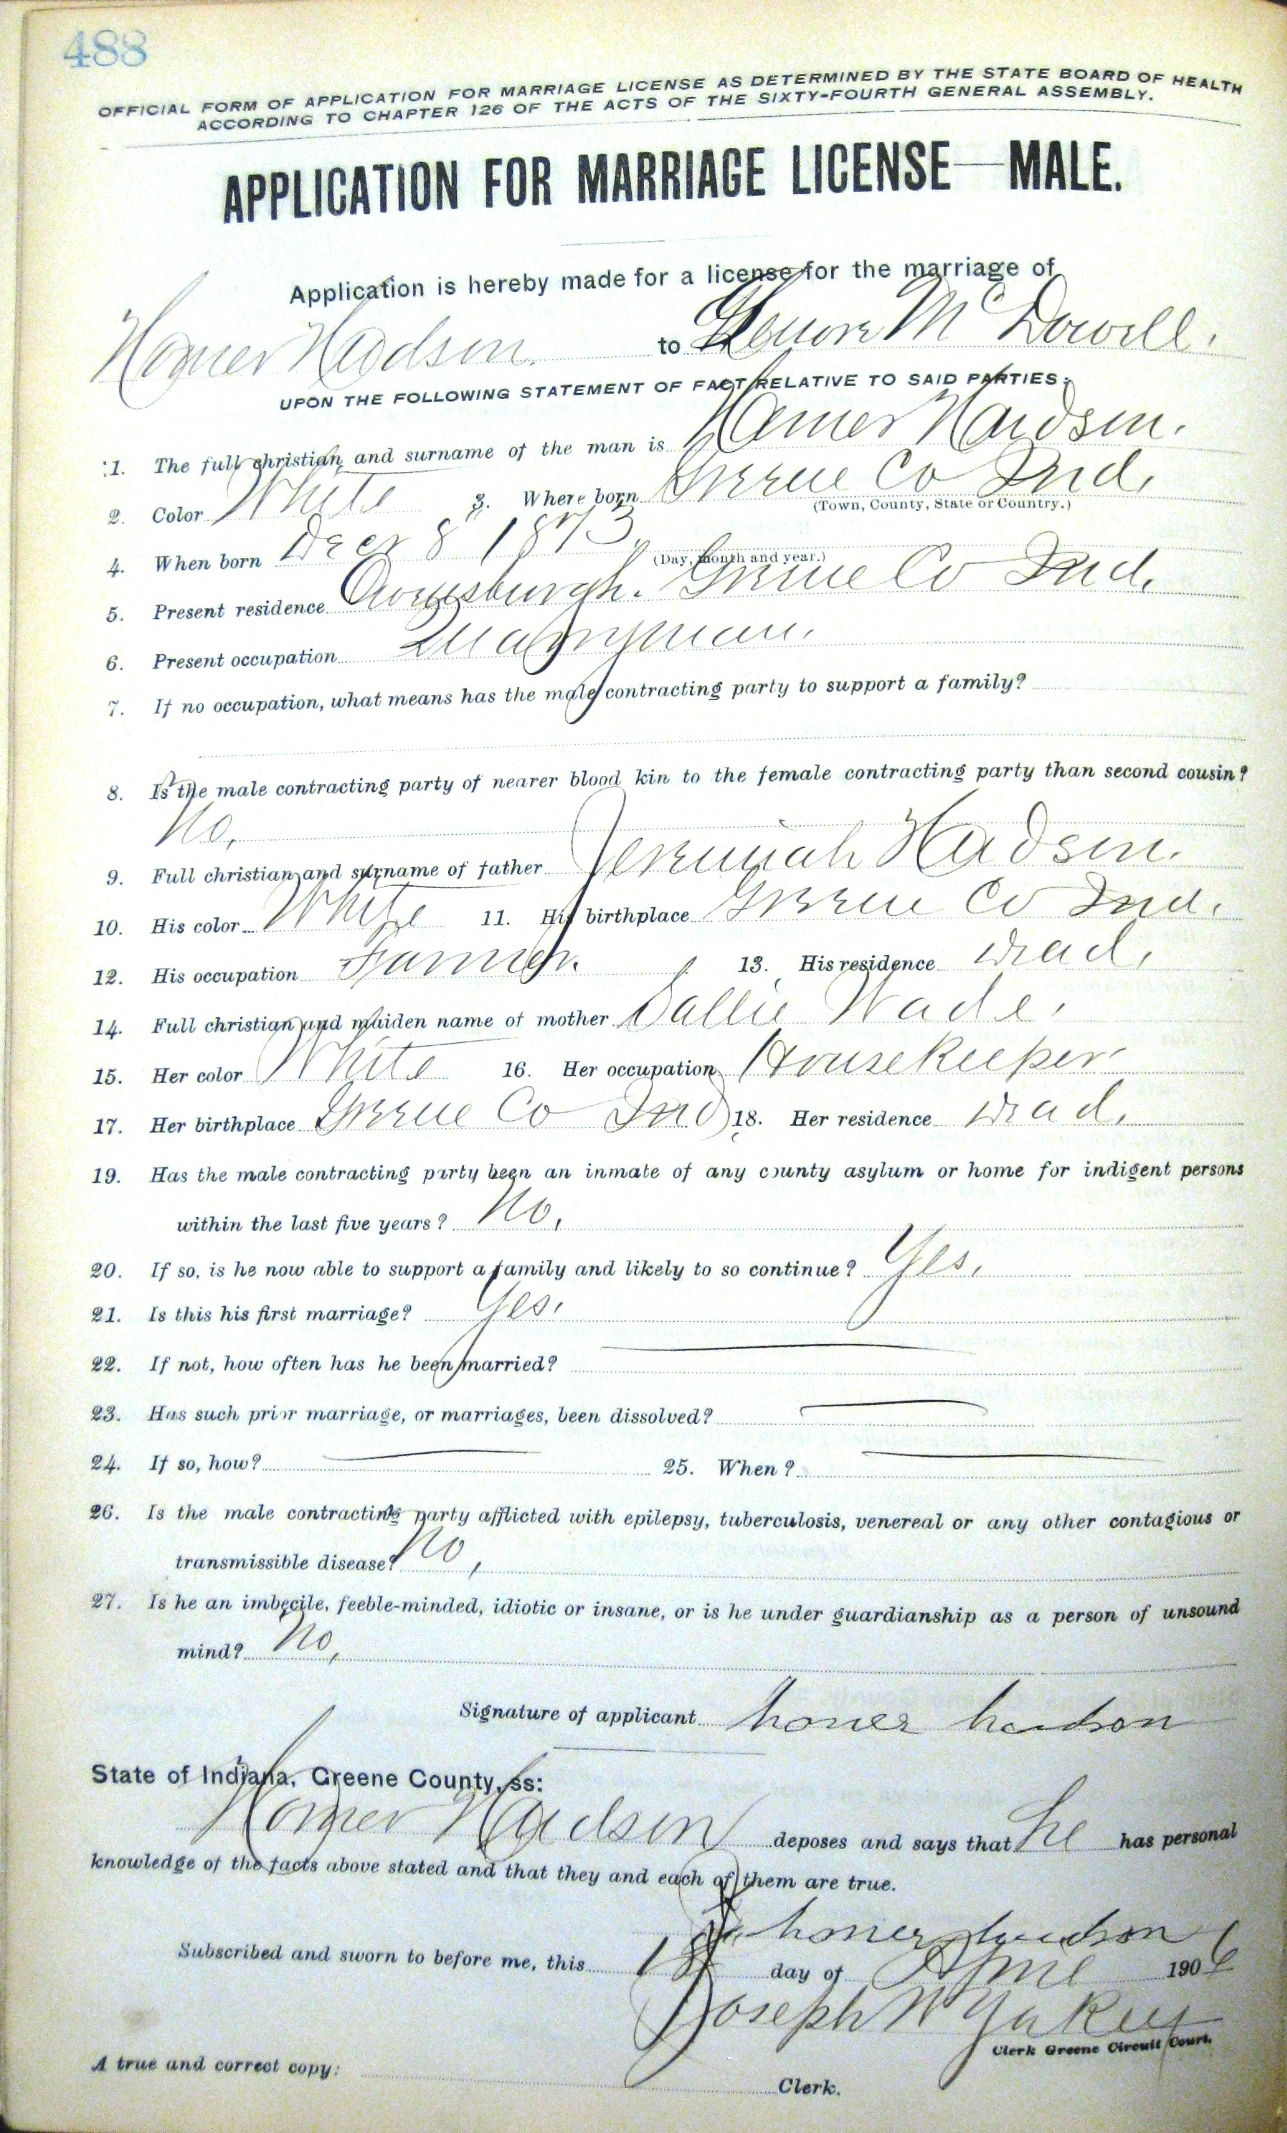 488
OFFICIAL FORM OF APPLICATION FOR MARRIAGE LICENSE AS DETERMINED BY THE STATE BOARD OF HEALTH
ACCORDING TO CHAPTER 126 OF THE ACTS OF THE SIXTY-FOURTH GENERAL ASSEMBLY.
APPLICATION FOR MARRIAGE LICENSE—MALE.
Application is hereby made for a license for the marriage of
Homer Hudson. to Lenore McDowell.
UPON THE FOLLOWING STATEMENT OF FACT RELATIVE TO SAID PARTIES:
1. The full christian and surname of the man is Homer Hudson.
2. Color White 3. Where born Greene Co Ind.
(Town, County, State or Country.)
4. When born Decr 8" 1873.
(Day, month and year.)
5. Present residence Owensburgh. Greene Co Ind.
6. Present occupation Quarryman.
7. If no occupation, what means has the male contracting party to support a family?
8. Is the male contracting party of nearer blood kin to the female contracting party than second cousin?
No.
9. Full christian and surname of father Jeremiah Hudson.
10. His color White 11. His birthplace Greene Co Ind.
12. His occupation Farmer. 13. His residence Dead.
14. Full christian and maiden name of mother Sallie Wade.
15. Her color White 16. Her occupation Housekeeper
17. Her birthplace Greene Co Ind 18. Her residence Dead.
19. Has the male contracting party been an inmate of any county asylum or home for indigent persons
within the last five years? No.
20. If so, is he now able to support a family and likely to so continue? Yes.
21. Is this his first marriage? Yes.
22. If not, how often has he been married?
23. Has such prior marriage, or marriages, been dissolved?
24. If so, how? 25. When?
26. Is the male contracting party afflicted with epilepsy, tuberculosis, venereal or any other contagious or
transmissible disease? No,
27. Is he an imbecile, feeble-minded, idiotic or insane, or is he under guardianship as a person of unsound
mind? No,
Signature of applicant homer hudson
State of Indiana, Greene County, ss:
Homer Hudson deposes and says that he has personal
knowledge of the facts above stated and that they and each of them are true.
homer hudson
Subscribed and sworn to before me, this 18 day of April 1906
Joseph W Yakey
Clerk Greene Circuit Court.
A true and correct copy:
Clerk.